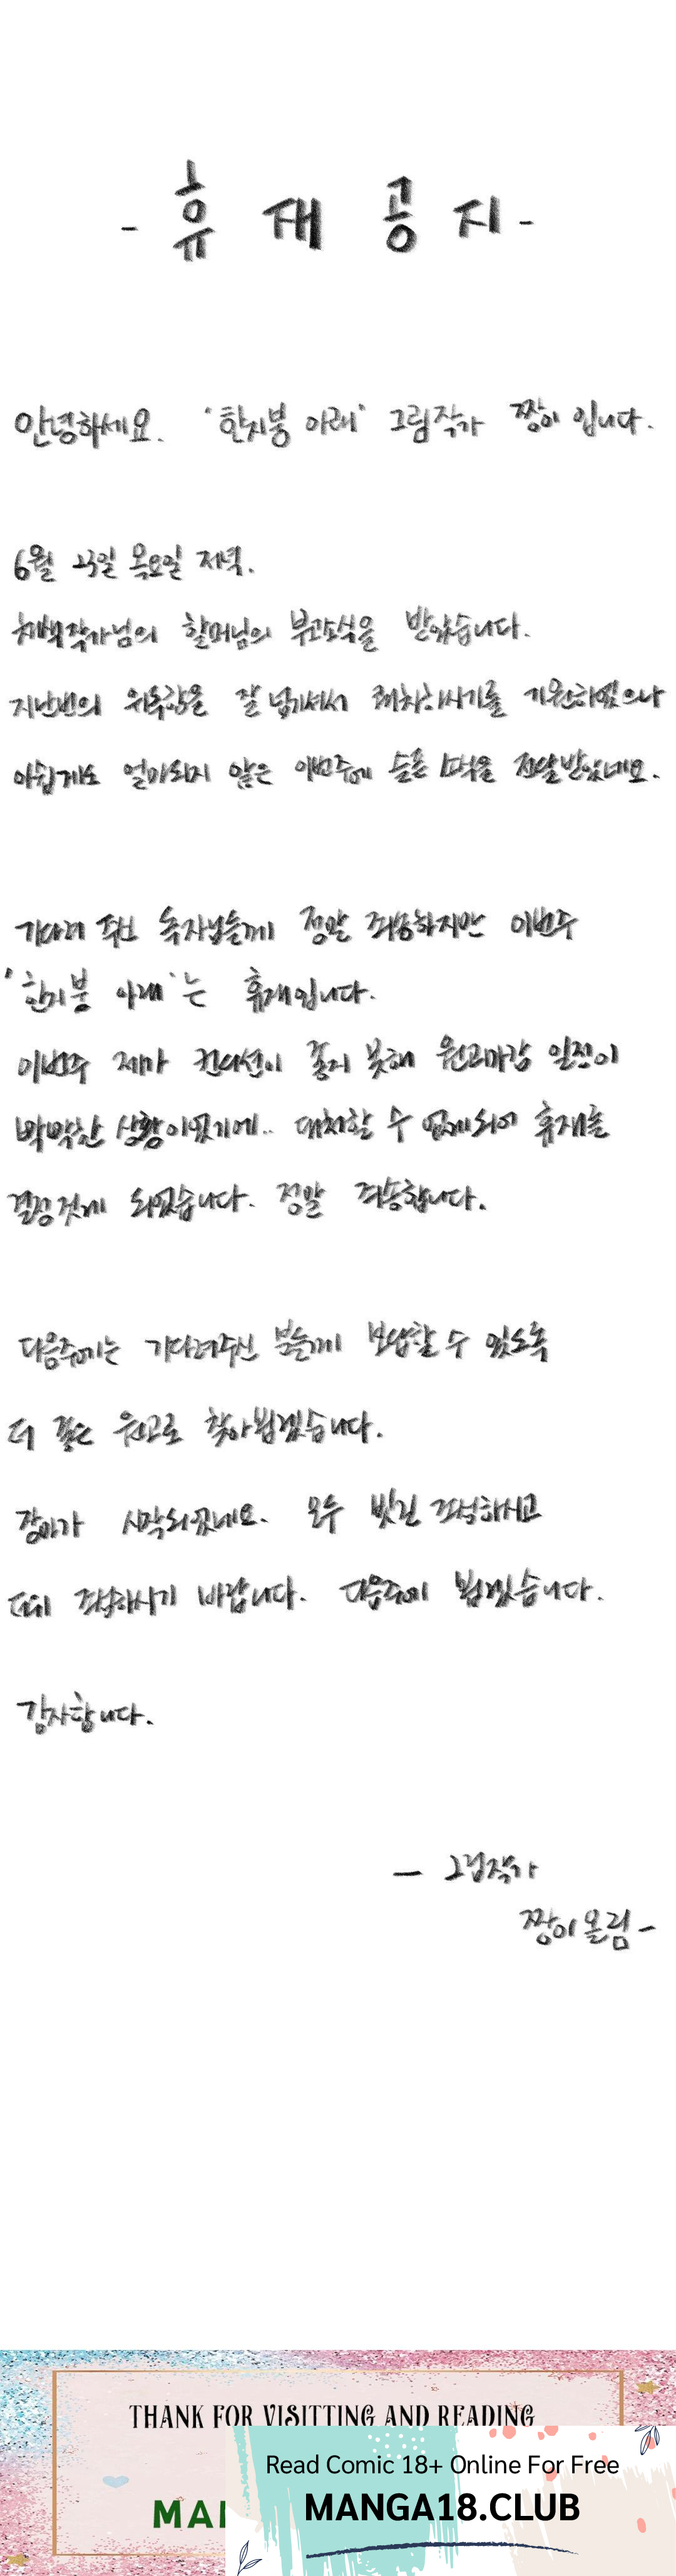 - 휴 재 공 지 -
안녕하세요. '한지붕 아래' 그림작가 짱이 입니다.
6월 23일 목요일 저녁.
작가님의 할머님의 부고소식을 받았습니다.
지난번의 잘 넘기셔서 쾌차하시기를 기원하였으나
아쉽게도 얼마되지 않은 이번주에 슬픈 소식을 전달받았네요.
기다려 주신 독자님들께 정말 죄송하지만 이번주
'한지붕 아래'는 휴재입니다.
이번주 제가 컨디션이 좋지 못해 원고마감 일정이
빡빡한 상황이었기에.. 대처할 수 없게되어 휴재를
결정짓게 되었습니다. 정말 죄송합니다.
다음주에는 기다려주신 분들께 보답할 수 있도록
더 좋은 원고로 찾아뵙겠습니다.
장마가 시작되었네요. 모두 빗길 조심하시고
조심하시기 바랍니다. 다음주에 뵙겠습니다.
감사합니다.
- 그림작가
짱이 올림 -
THANK FOR VISITTING AND READING
Read Comic 18+ Online For Free
MANGA18.CLUB